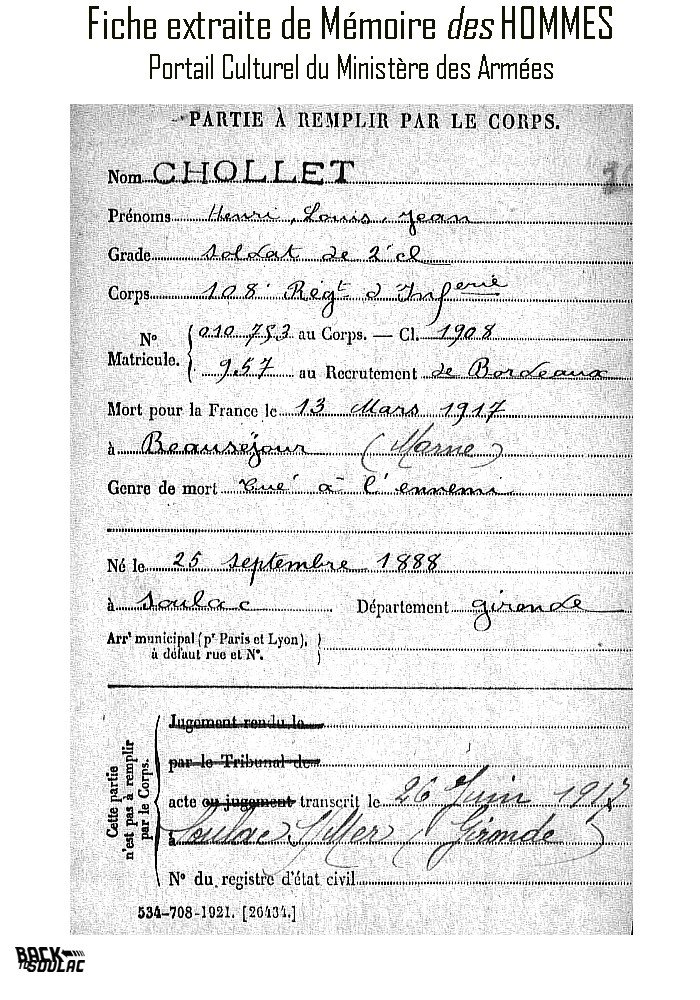 Fiche extraite de Mémoire des HOMMES
Portail Culturel du Ministère des Armées
PARTIE À REMPLIR PAR LE CORPS.
Nom CHOLLET
Prénoms Henri, Louis, Jean
Grade soldat de 2e cl
Corps 108e Régt d'Inferie
No Matricule. 010.753 au Corps. — Cl. 1908
957 au Recrutement de Bordeaux
Mort pour la France le 13 Mars 1917
à Beauséjour (Marne)
Genre de mort tué à l'ennemi
Né le 25 septembre 1888
à Soulac Département gironde
Arrt municipal (pr Paris et Lyon),
à défaut rue et No.
Cette partie
n'est pas à remplir
par le Corps.
Jugement rendu le
par le Tribunal de
acte ou jugement transcrit le 26 Juin 1917
à Soulac s/Mer (Gironde)
No du registre d'état civil
534-708-1921. [26434.]
BACK
TO SOULAC